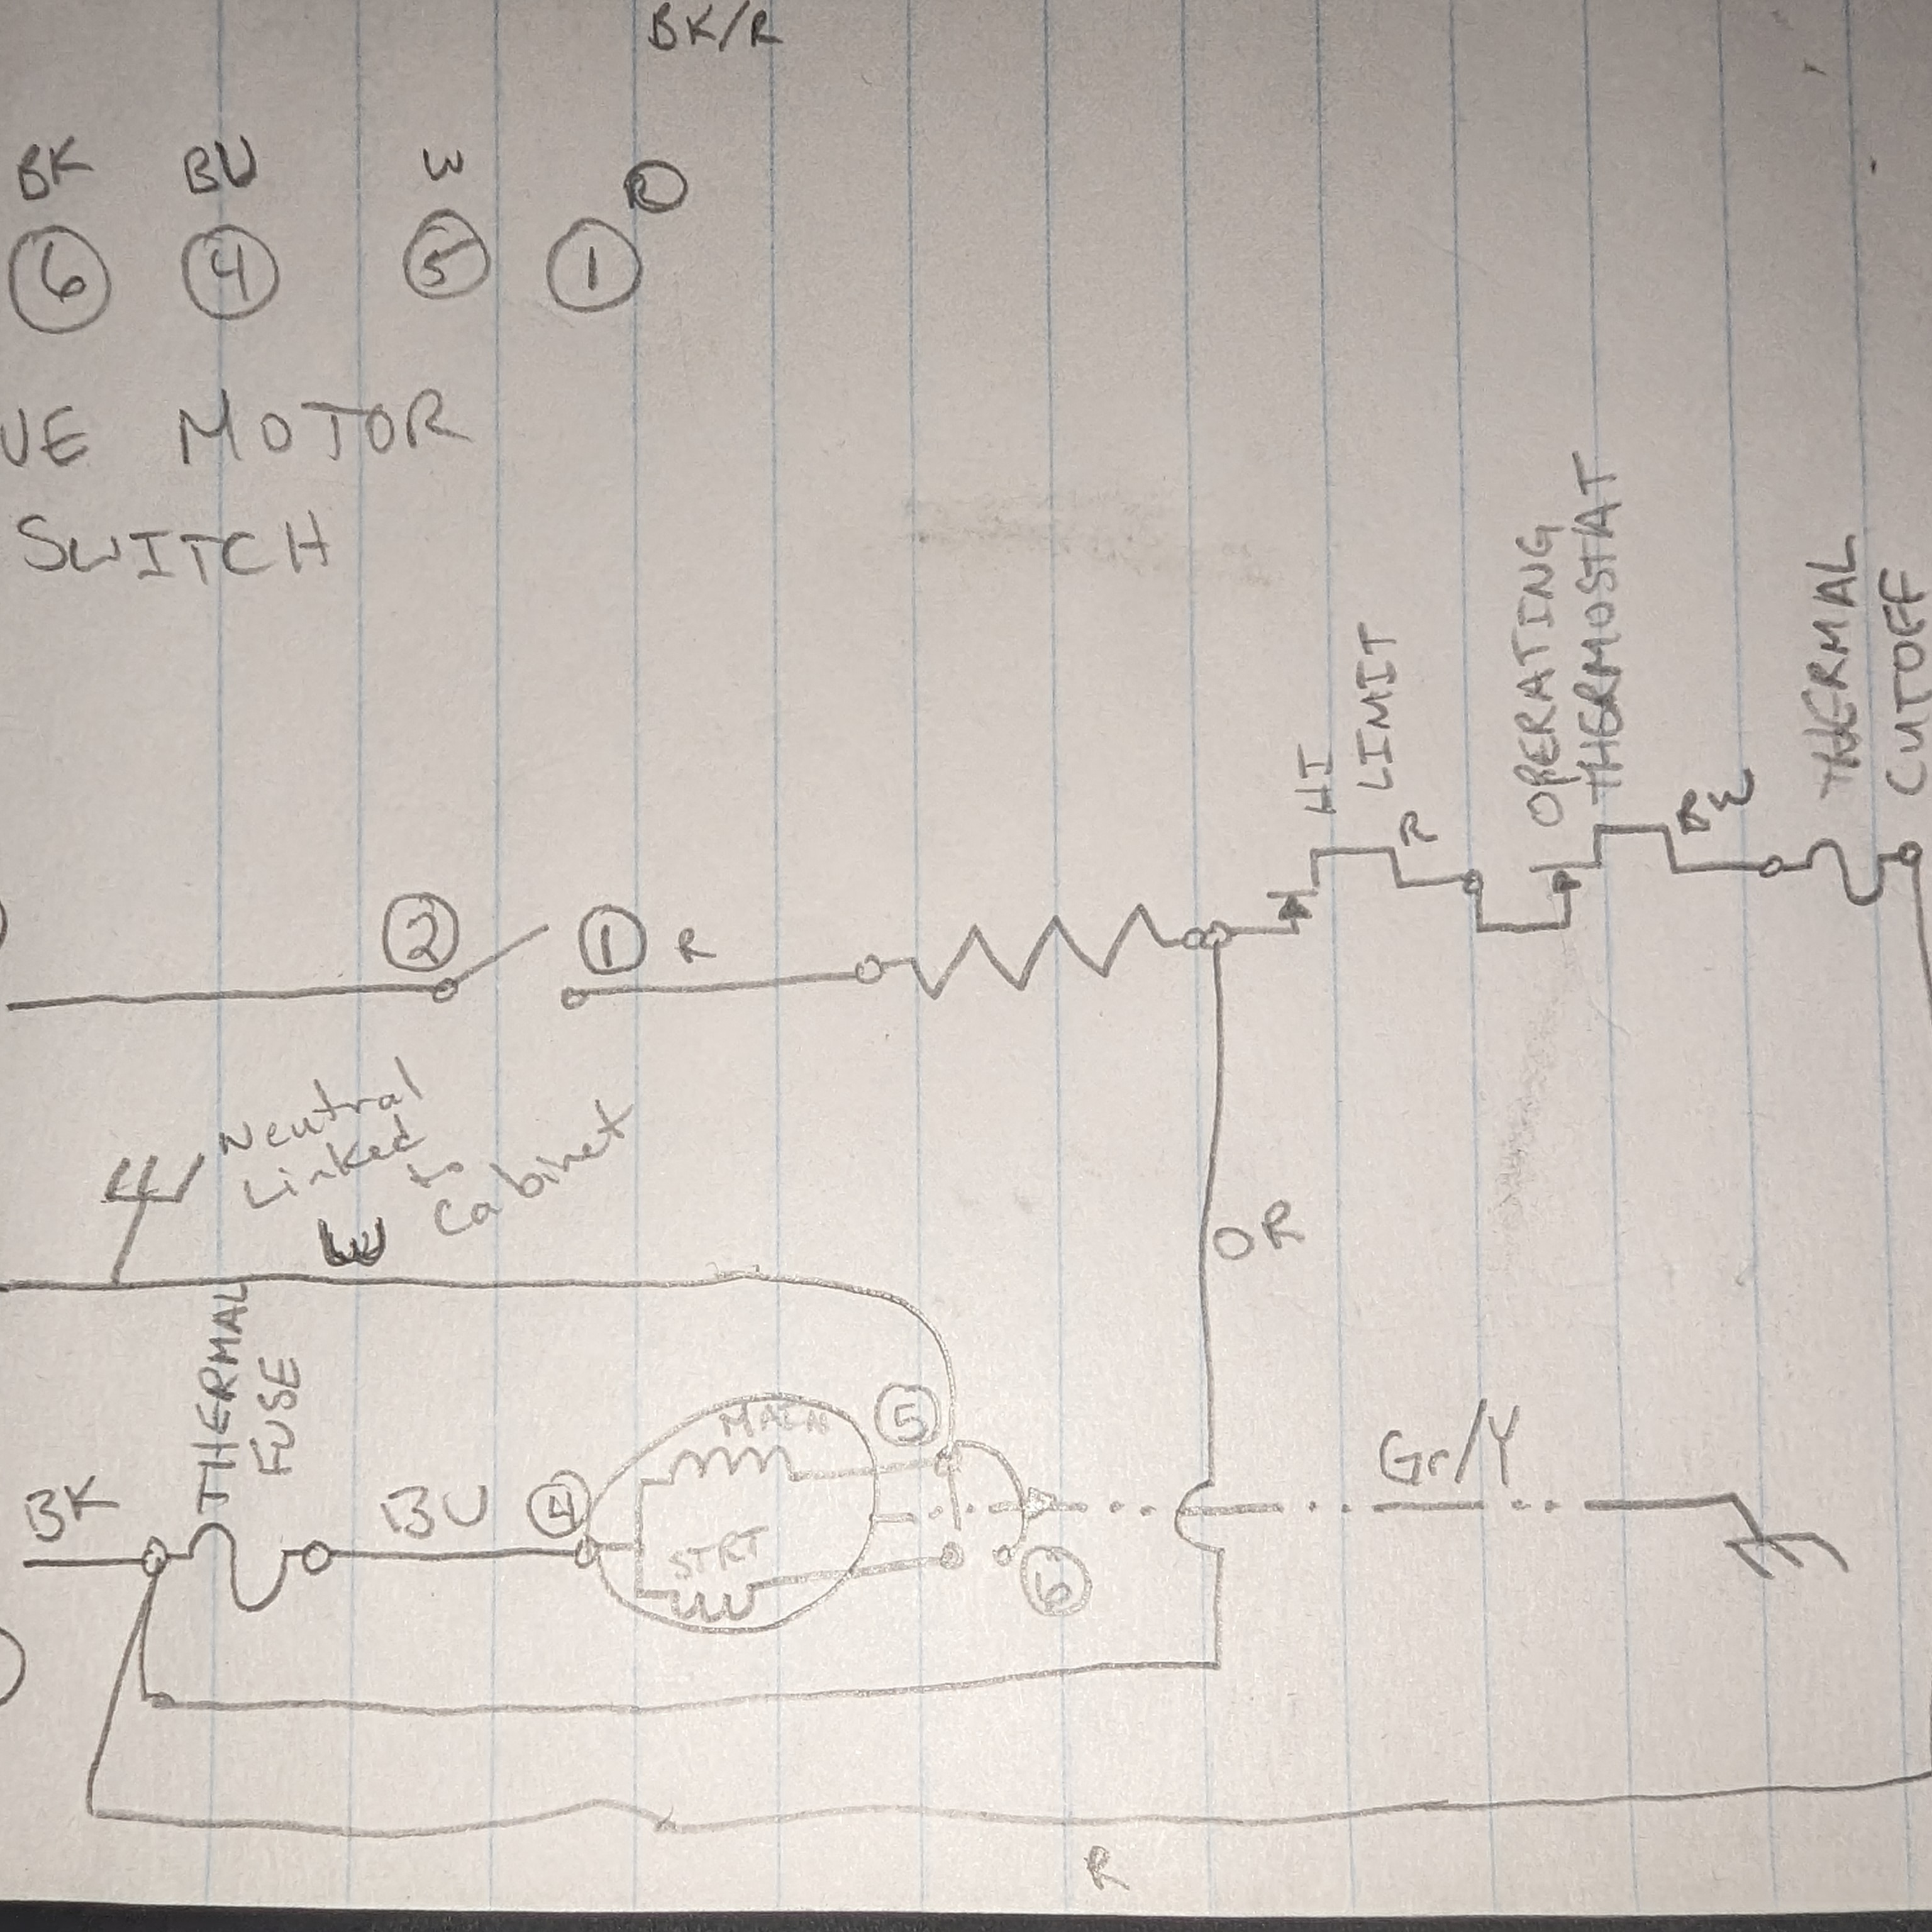 BK/R
BK BU W R
6 4 5 1
VE MOTOR
SWITCH
HI
LIMIT
R
OPERATING
THERMOSTAT
THERMAL
CUTOFF
2 1 R
Neutral
Linked
to
Cabinet
W
OR
THERMAL
FUSE
BK
BU
4
MAIN
STRT
5
6
Gr/Y
R